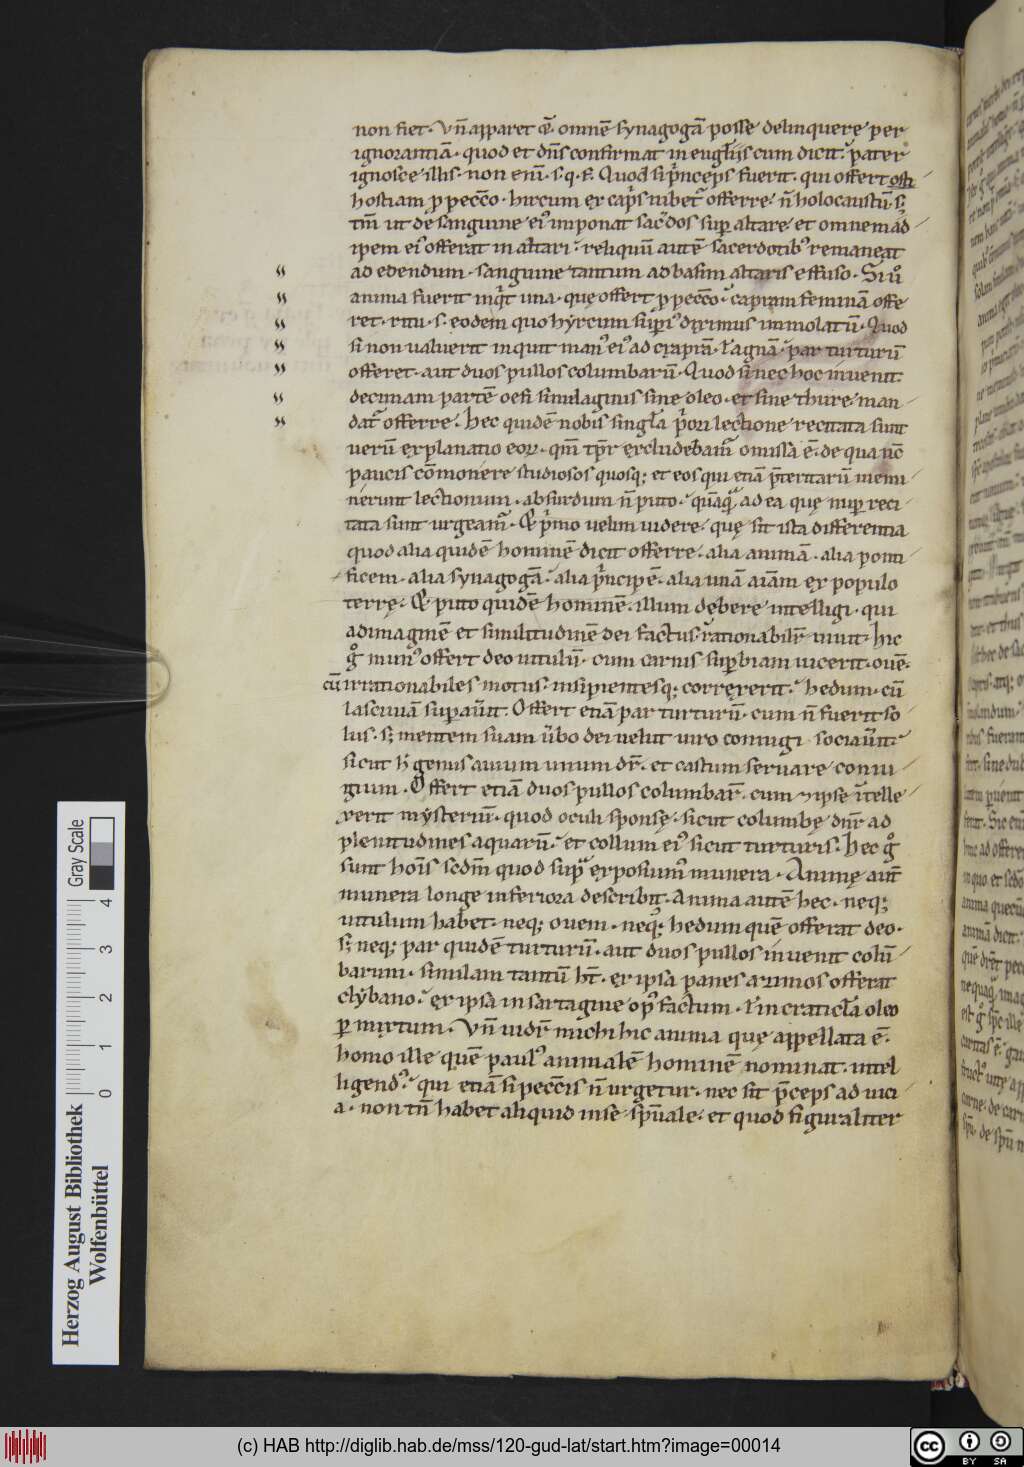 non fiet. Vn̄ apparet ē. omnē synagogā posse delinquerę per
ignorantiā. quod et dn̄s confirmat in eugl̄iis cum dicit. pater
ignosce illis. non eni. s. q. f. Quod si pͥnceps fuerit. qui offert
hostiam ꝓ pecc̄o. hircum ex capͥs iubet᷑ offerre. n̄ holocaustū. sꝫ
tm̄ ut de sanguine ei᷒ imponat sac̄dos suꝑ altare. et omnem ad
ipem ei᷒ offerat in altari. reliquū autē sacerdotib᷒ remaneat
ad edendum. sanguine tantum ad basim altaris effuso. Si uͦ
anima fuerit inqͥt una. quę offert ꝓ pecc̄o. capram feminā offe
ret. ritu. s. eodem quo hyrcum suꝑi᷒ diximus immolatū. Quod
si non ualuerit inquit man᷒ ei᷒ ad caprā. ł agnā. par turturū
offeret. aut duos pullos columbarū. Quod si nec hoc inuenit.
decimam partē oefi similaginis sine oleo. et sine thure man
dat᷑ offerre. Hec quidē nobis singl̄a pͥori lectione recitata sunt
uerū explanatio eoꝝ. qm̄ tp̄r excludebam᷑ omissa ē. de qua uł
paucis cōmonere studiosos quosqꝫ et eos qui etiā p̄teritarū memi
nerunt lectionum. absurdum n̄ puto. quāqͣ᷑ ad ea quę nuꝑ reci
tata sunt urgeam᷑. Et pͥmo uelim uidere. quę sit ista differentia
quod alia quidē hominē dicit offerre. alia animā. alia ponti
ficem. alia synagogā. alia pͥncipē. alia unā aīam ex populo
terrę. Et puto quidē hominē. illum dębere intelligi. qui
ad imaginē et similitudinē dei factus. rationabilr̄ uiuit. hic
gͦ mun᷒ offert deo uitulū. cum carnis suꝑbiam uicerit. ouē.
cū irrationabiles motus. insipientesqꝫ correxerit. hedum. cū
lasciuiā suꝑau̅it. Offert etiā par turturū. cum n̄ fuerit so
lus. sꝫ mentem suam u̅bo dei uelut uiro coniugi sociau̅it.
sicut hͦ genus auium unum dr̄. et castum seruare coniu
gium. Offert etiā duos pullos columbar̄. cum ⁊ ipse ītelle
xerit mysteriū. quod oculi sponsę. sicut columbę dnr̄ ad
plenitudines aquarū. et collum ei᷒ sicut turturis. Hec gͦ
sunt hoīs scdm̄ quod supͣ exposuim᷒ munera. Animę aut̄
munera longe inferiora describit. Anima autē hec. neqꝫ
uitulum habet. neqꝫ ouem. neqꝫ hedum quē offerat deo.
sꝫ neqꝫ par quidē turturū. aut duos pullos inuenit colū
barum. similam tantū ht̄. ex ipsa panes azimos offerat
clybano. ex ipsa in sartagine op᷒ factum. ł in craticl̄a oleo
ꝑmixtum. Vn̄ uidr̄ michi hic anima quę appellata ē.
homo ille quē paul᷒ animalē hominē nominat. intel
ligend᷒. qui etiā si pecc̄is n̄ urgetur. nec sit p̄ceps ad uici
a. non tn̄ habet aliquid in se spūale. et quod figuraliter
Herzog August Bibliothek
Wolfenbüttel
Gray Scale
0 1 2 3 4
(c) HAB http://diglib.hab.de/mss/120-gud-lat/start.htm?image=00014
cc BY SA